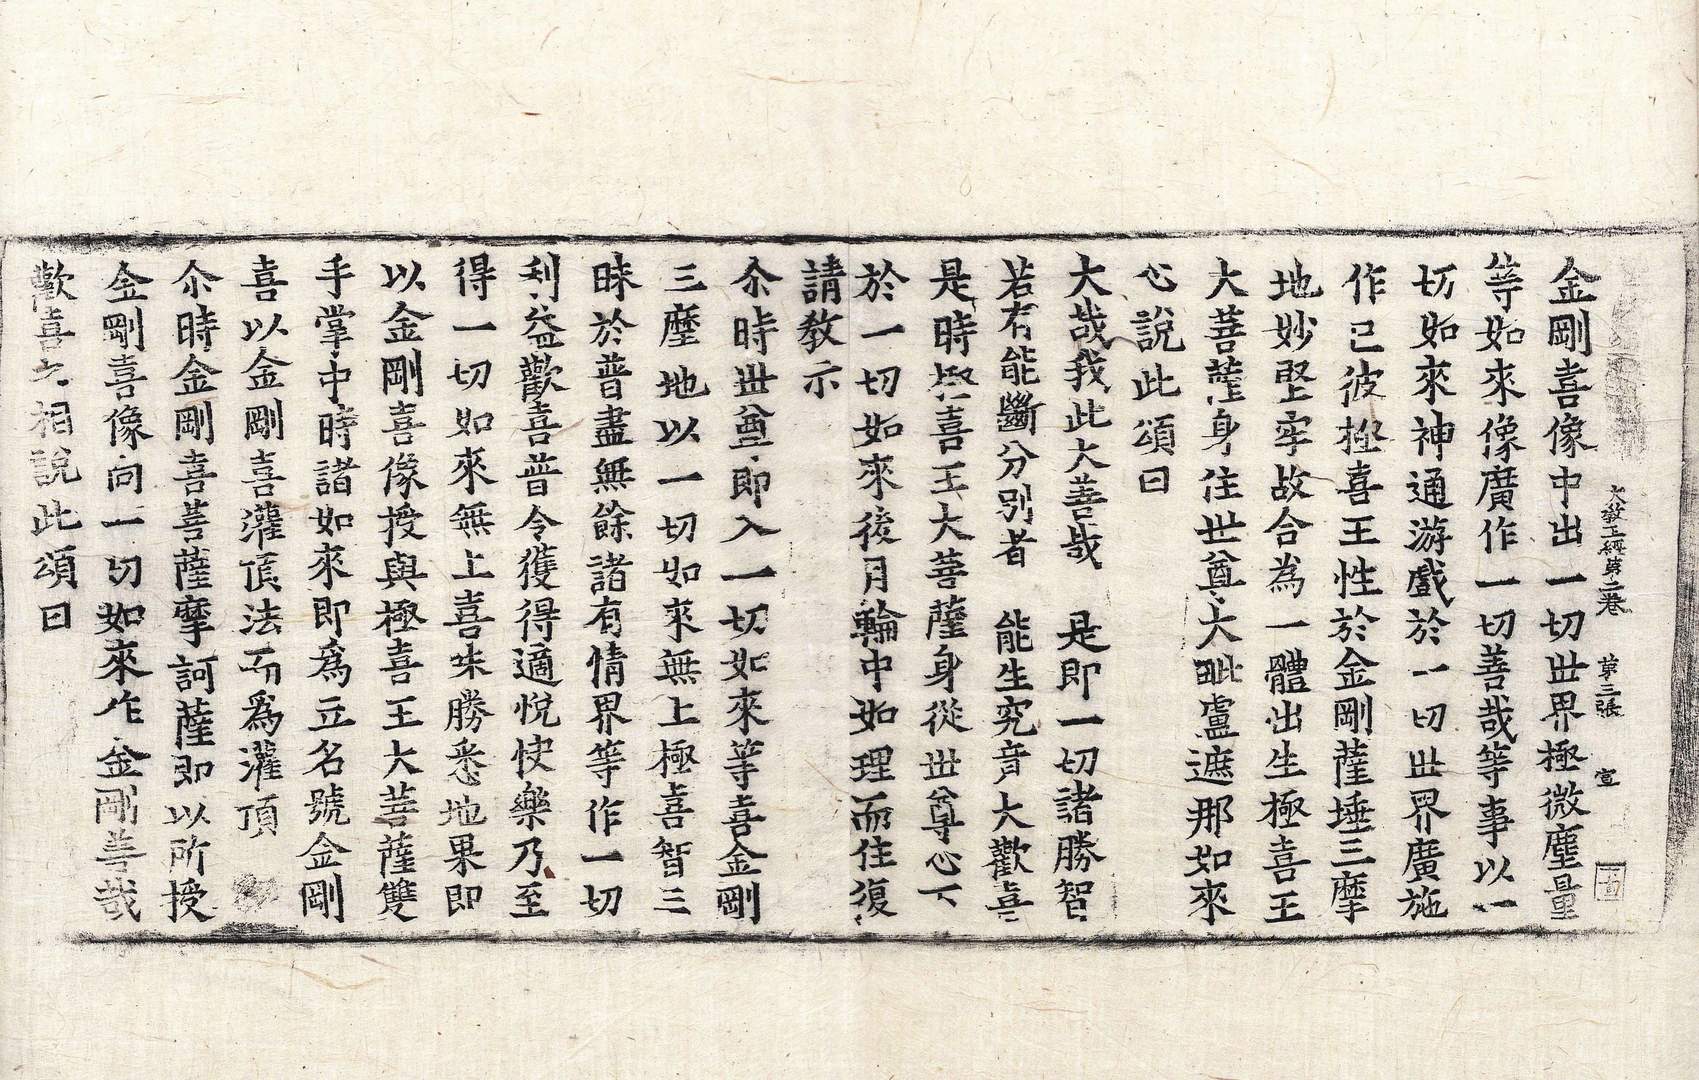 大教王經第二卷　第三張　宣
金剛喜像中出一切世界極微塵量
等如來像廣作一切善哉等事以一
切如來神通游戲於一切世界廣施
作已彼極喜王性於金剛薩埵三摩
地妙堅牢故合為一體出生極喜王
大菩薩身住世尊大毗盧遮那如來
心說此頌曰
大哉我此大善哉　是即一切諸勝智
若有能斷分別者　能生究竟大歡喜
是時極喜王大菩薩身從世尊心下
於一切如來後月輪中如理而住復
請教示
尒時世尊即入一切如來等喜金剛
三摩地以一切如來無上極喜智三
昧於普盡無餘諸有情界等作一切
利益歡喜普令獲得適悅快樂乃至
得一切如來無上喜味勝悉地果即
以金剛喜像授與極喜王大菩薩雙
手掌中時諸如來即爲立名號金剛
喜以金剛喜灌頂法而爲灌頂
尒時金剛喜菩薩摩訶薩即以所授
金剛喜像向一切如來作金剛善哉
歡喜之相說此頌曰